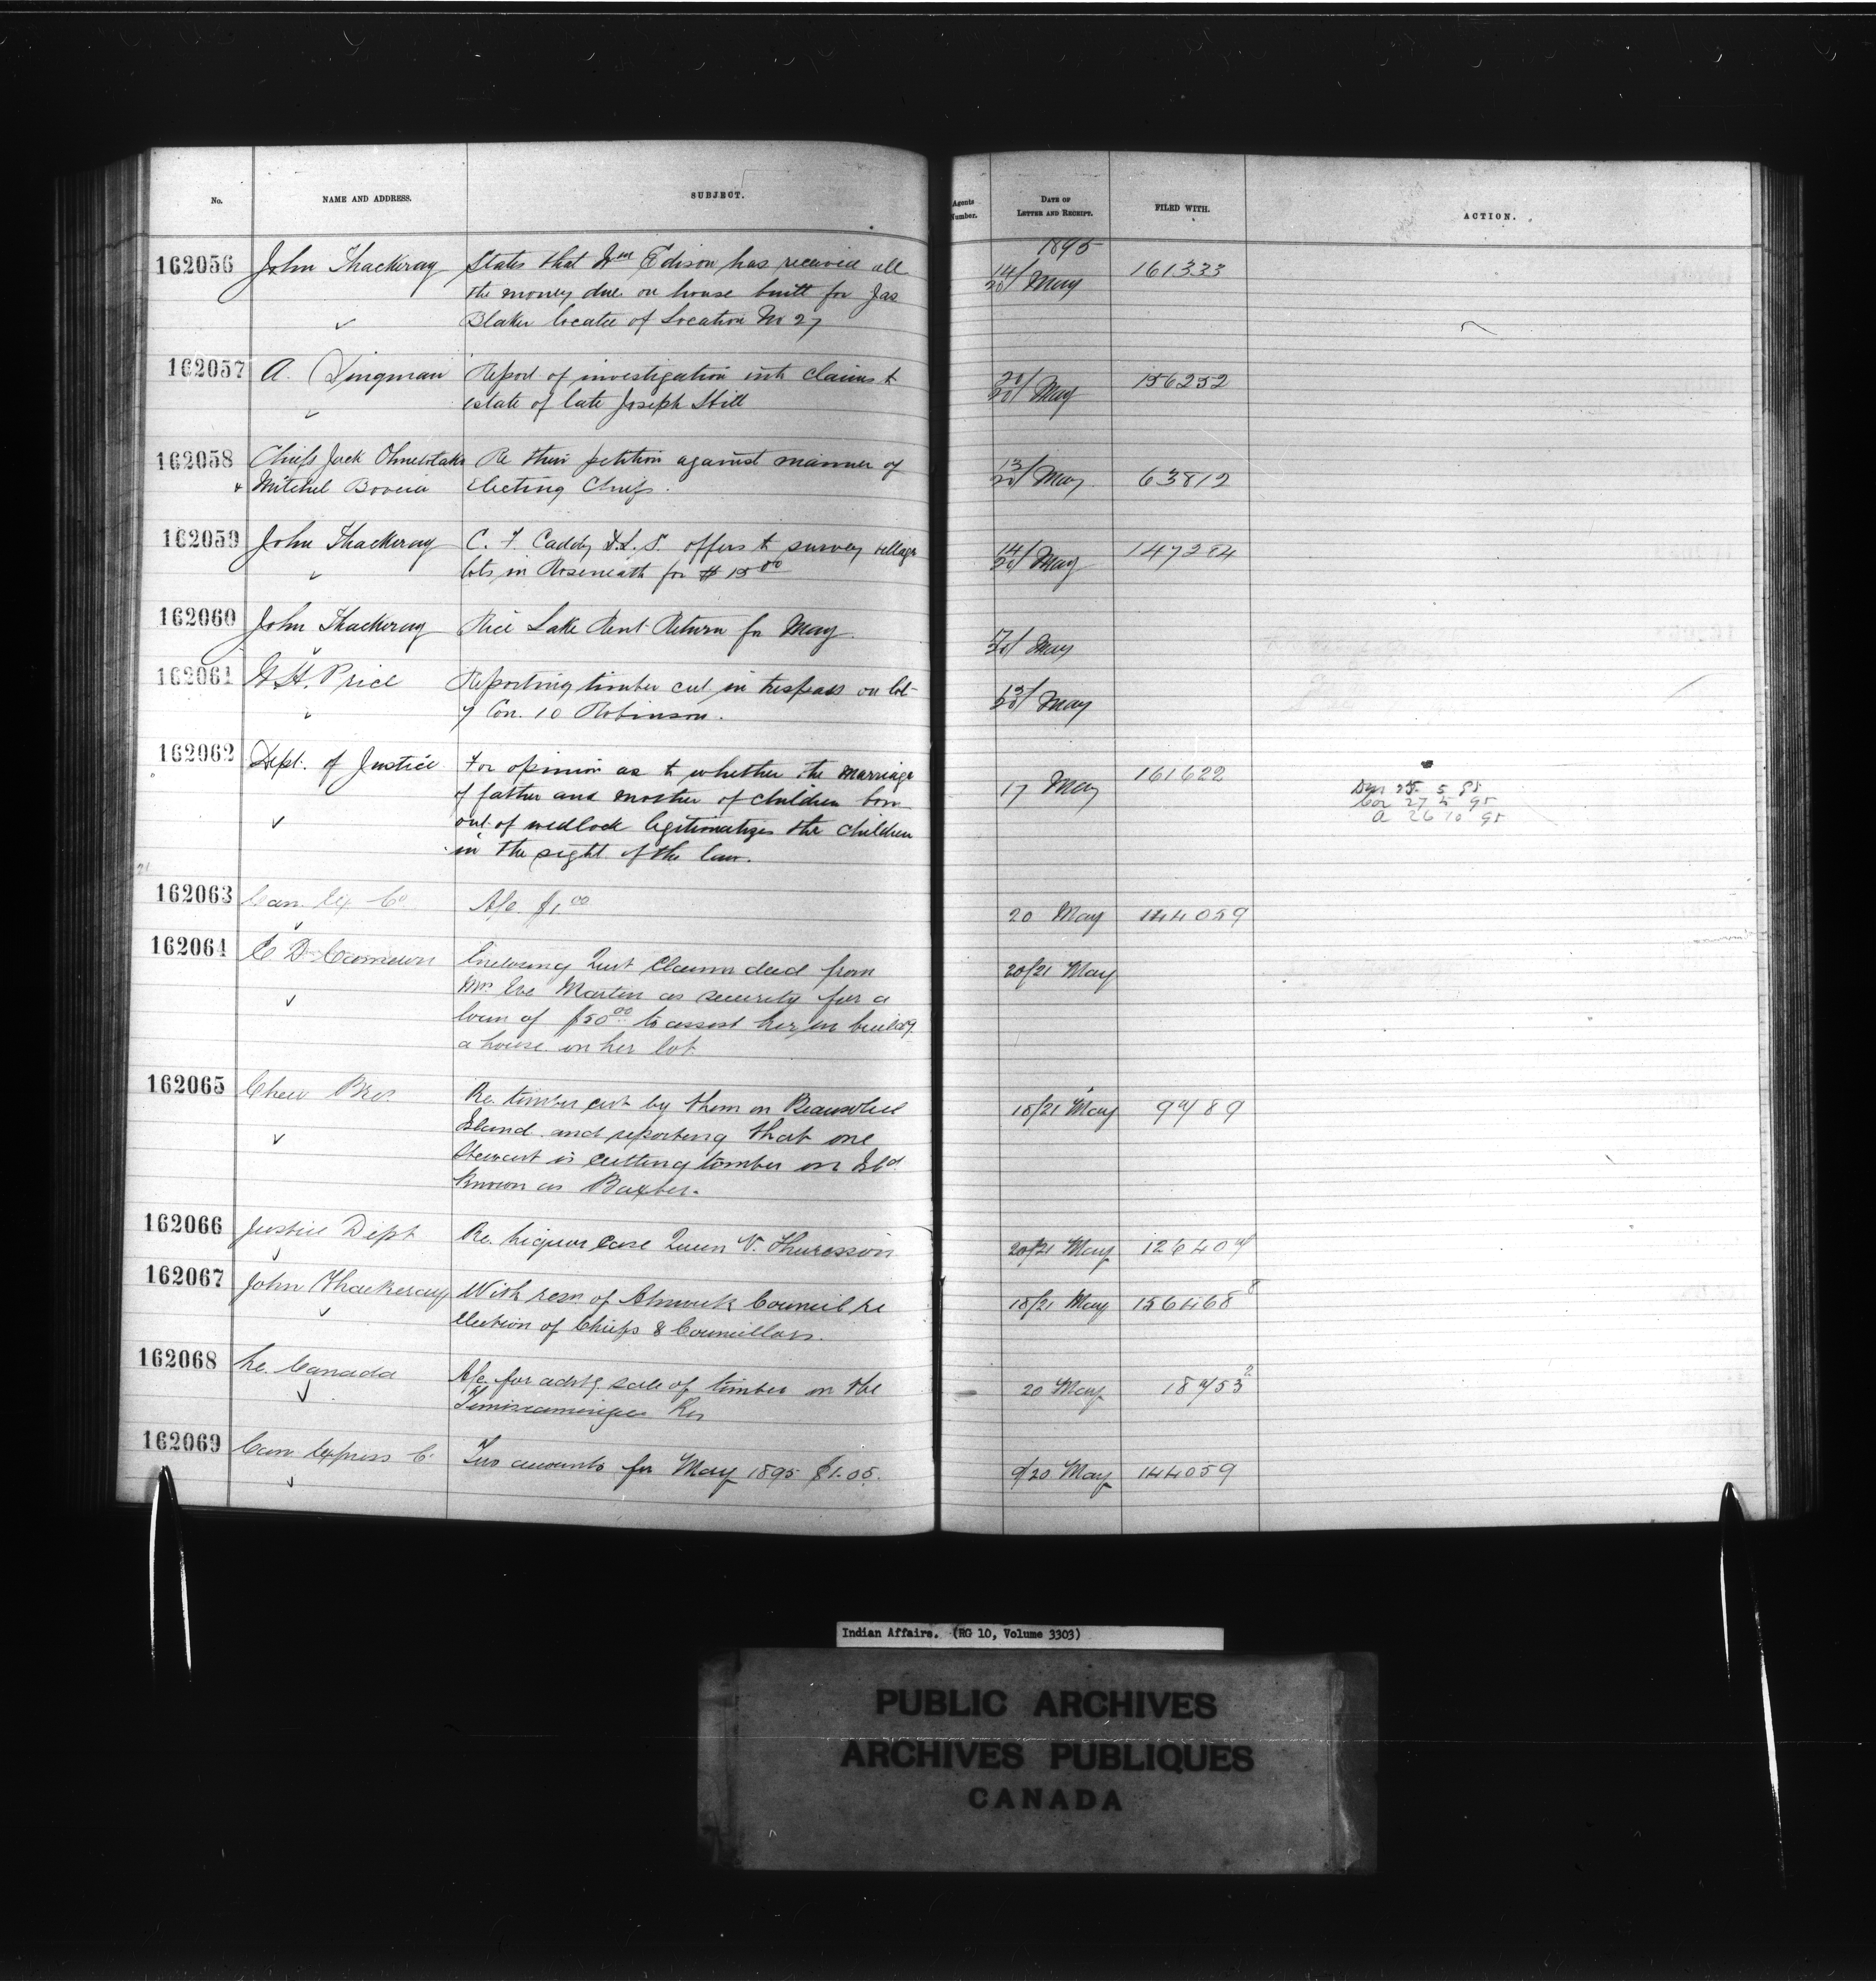 No. NAME AND ADDRESS. SUBJECT. Agents Number. DATE OF LETTER AND RECEIPT. FILED WITH. ACTION.
1895
162056 John Thackeray States that Wm Edison has received all 14/20 May 161333
the money due on house built for Jas
Blaker locatee of Location No 27
162057 A. Dingman Report of investigation into claims to 20/20 May 156252
estate of late Joseph Hill
162058 Chiefs Jack Re their petition against manner of 13/20 May 63812
& Mitchel electing Chiefs.
162059 John Thackeray C. F. Caddy D.L.S. offers to survey village 14/20 May 147284
lots in Roseneath for $15 00
162060 John Thackeray Rice Lake Rent Return for May. 17/20 May
162061 W. H. Price Reporting timber cut in trespass on lot 13/20 May
7 Con. 10 Robinson.
162062 Dept. of Justice For opinion as to whether the marriage 17 May 161622
of father and mother of children born
out of wedlock legitimatizes the children
in the sight of the law.
25 5 95
27 5 95
A 26 10 95
162063 Can. Ex. Co A/c. $1.00 20 May 144059
162064 E. D. Cameron Enclosing Quit Claim deed from 20/21 May
Mrs. Eve Martin as security for a
loan of $50 00 to assist her in build'g
a house on her lot.
162065 Chew Bros Re. timber cut by them on Beausoliel 18/21 May 9489
Island and reporting that one
Stewart is cutting timber on Isld
known as Baxter.
162066 Justice Dept Re. liquor case Queen V. Thuresson 20/21 May 126404
162067 John Thackeray With resn. of Alnwick Council re 18/21 May 156468 8
election of Chiefs & Councillors.
162068 Le Canada A/c. for advtg. sale of timber on the 20 May 18453 2
Temiscamingue Res
162069 Can Express C. Two accounts for May 1895 $1.05. 9/20 May 144059
Indian Affairs. (RG 10, Volume 3303)
PUBLIC ARCHIVES
ARCHIVES PUBLIQUES
CANADA